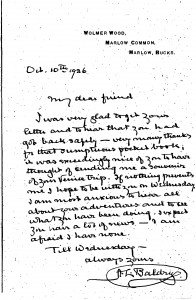 WOLMER WOOD,
MARLOW COMMON,
MARLOW, BUCKS.
Oct. 10th 1926
My dear friend
I was very glad to get your
letter and to hear that you had
got back safely — very many thanks
for that sumptuous pocket book;
it was exceedingly nice of you to have
thought of sending me a souvenir
of your Venice trip. If nothing prevents
me I hope to be with you on Wednesday
I am most anxious to hear all
about your adventures and to see
what you have been doing. I expect
you have a lot of news — I am
afraid I have none.
Till Wednesday —
always yours
A L Baldry